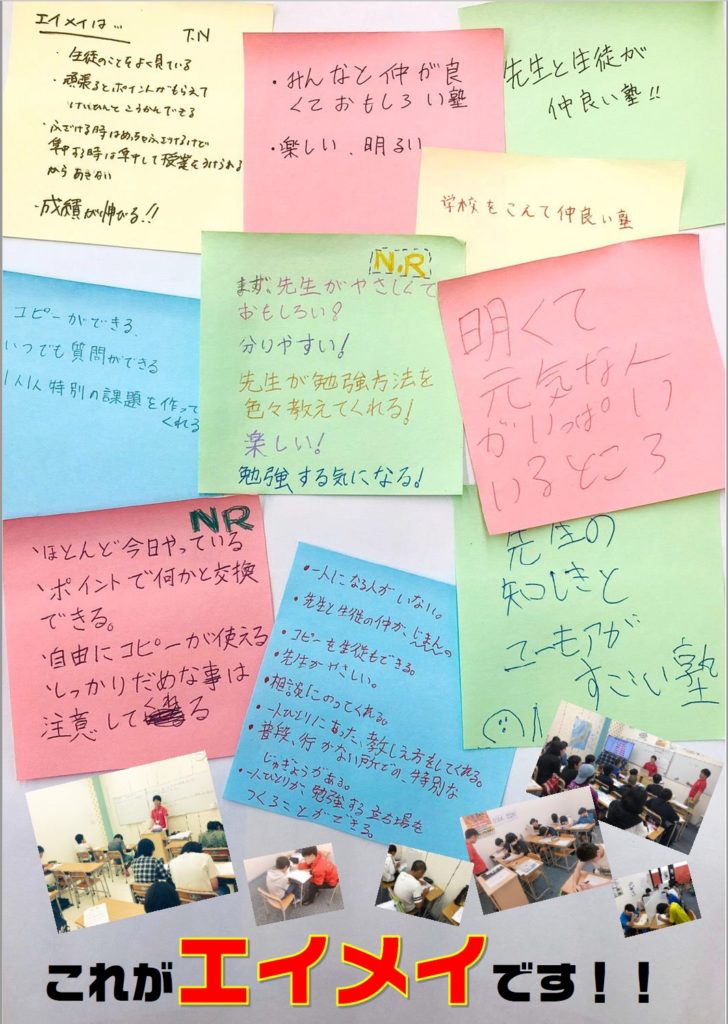 エイメイは… T.N
・生徒のことをよく見ている
・頑張るとポイントがもらえて
けいひんとこうかんできる
・ふざける時はめっちゃふざけるけど
集中する時は集中して授業をうけられる
からあきない
・成績が伸びる!!
・みんなと仲が良
くておもしろい塾
・楽しい、明るい
先生と生徒が
仲良い塾!!
学校をこえて仲良い塾
コピーができる、
いつでも質問ができる
1人1人特別の課題を作って
くれる
N.R
まず、先生がやさしくて
おもしろい?
分りやすい!
先生が勉強方法を
色々教えてくれる!
楽しい!
勉強する気になる!
明くて
元気な人
がいっぱい
いるところ
NR
・ほとんど今日やっている
・ポイントで何かと交換
できる。
・自由にコピーが使える
・しっかりだめな事は
注意してくれる
・一人になる人がいない。
・先生と生徒の仲が、じまんの
・コピーを生徒もできる。
・先生がやさしい。
・相談にのってくれる。
・一人ひとりにあった、教しえ方をしてくれる。
・普段、行かない所での、特別な
じゅぎょうがある。
・一人ひとりが、勉強する立場を
つくることができる。
先生の
知しきと
ユーモアが
すごい塾
これがエイメイです!!